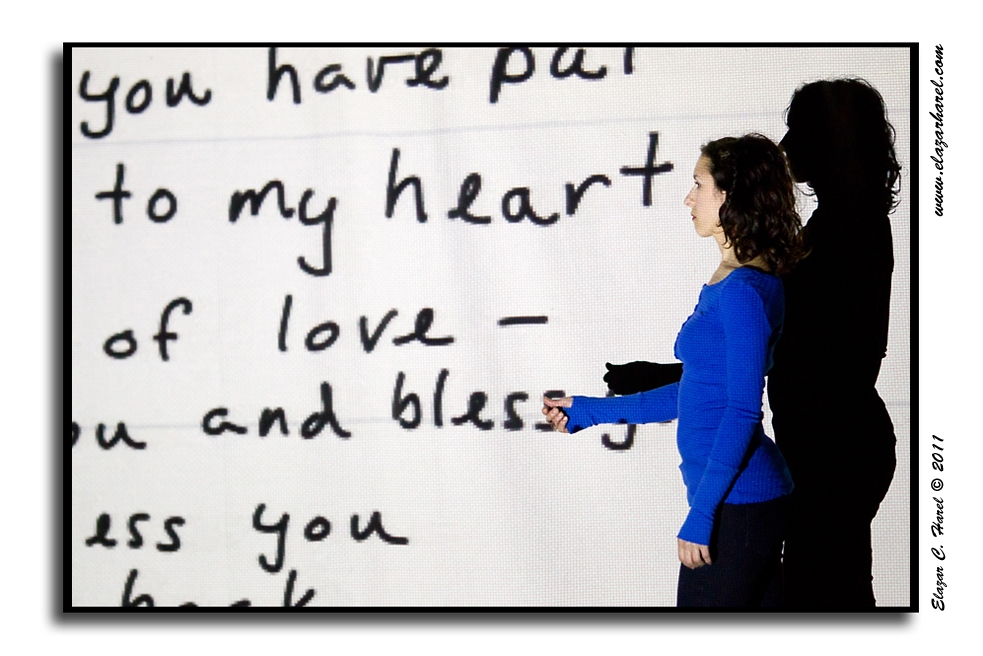 you have put
to my heart
of love –
ou and bless y
ess you
back
www.elazarharel.com
Elazar C. Harel © 2011